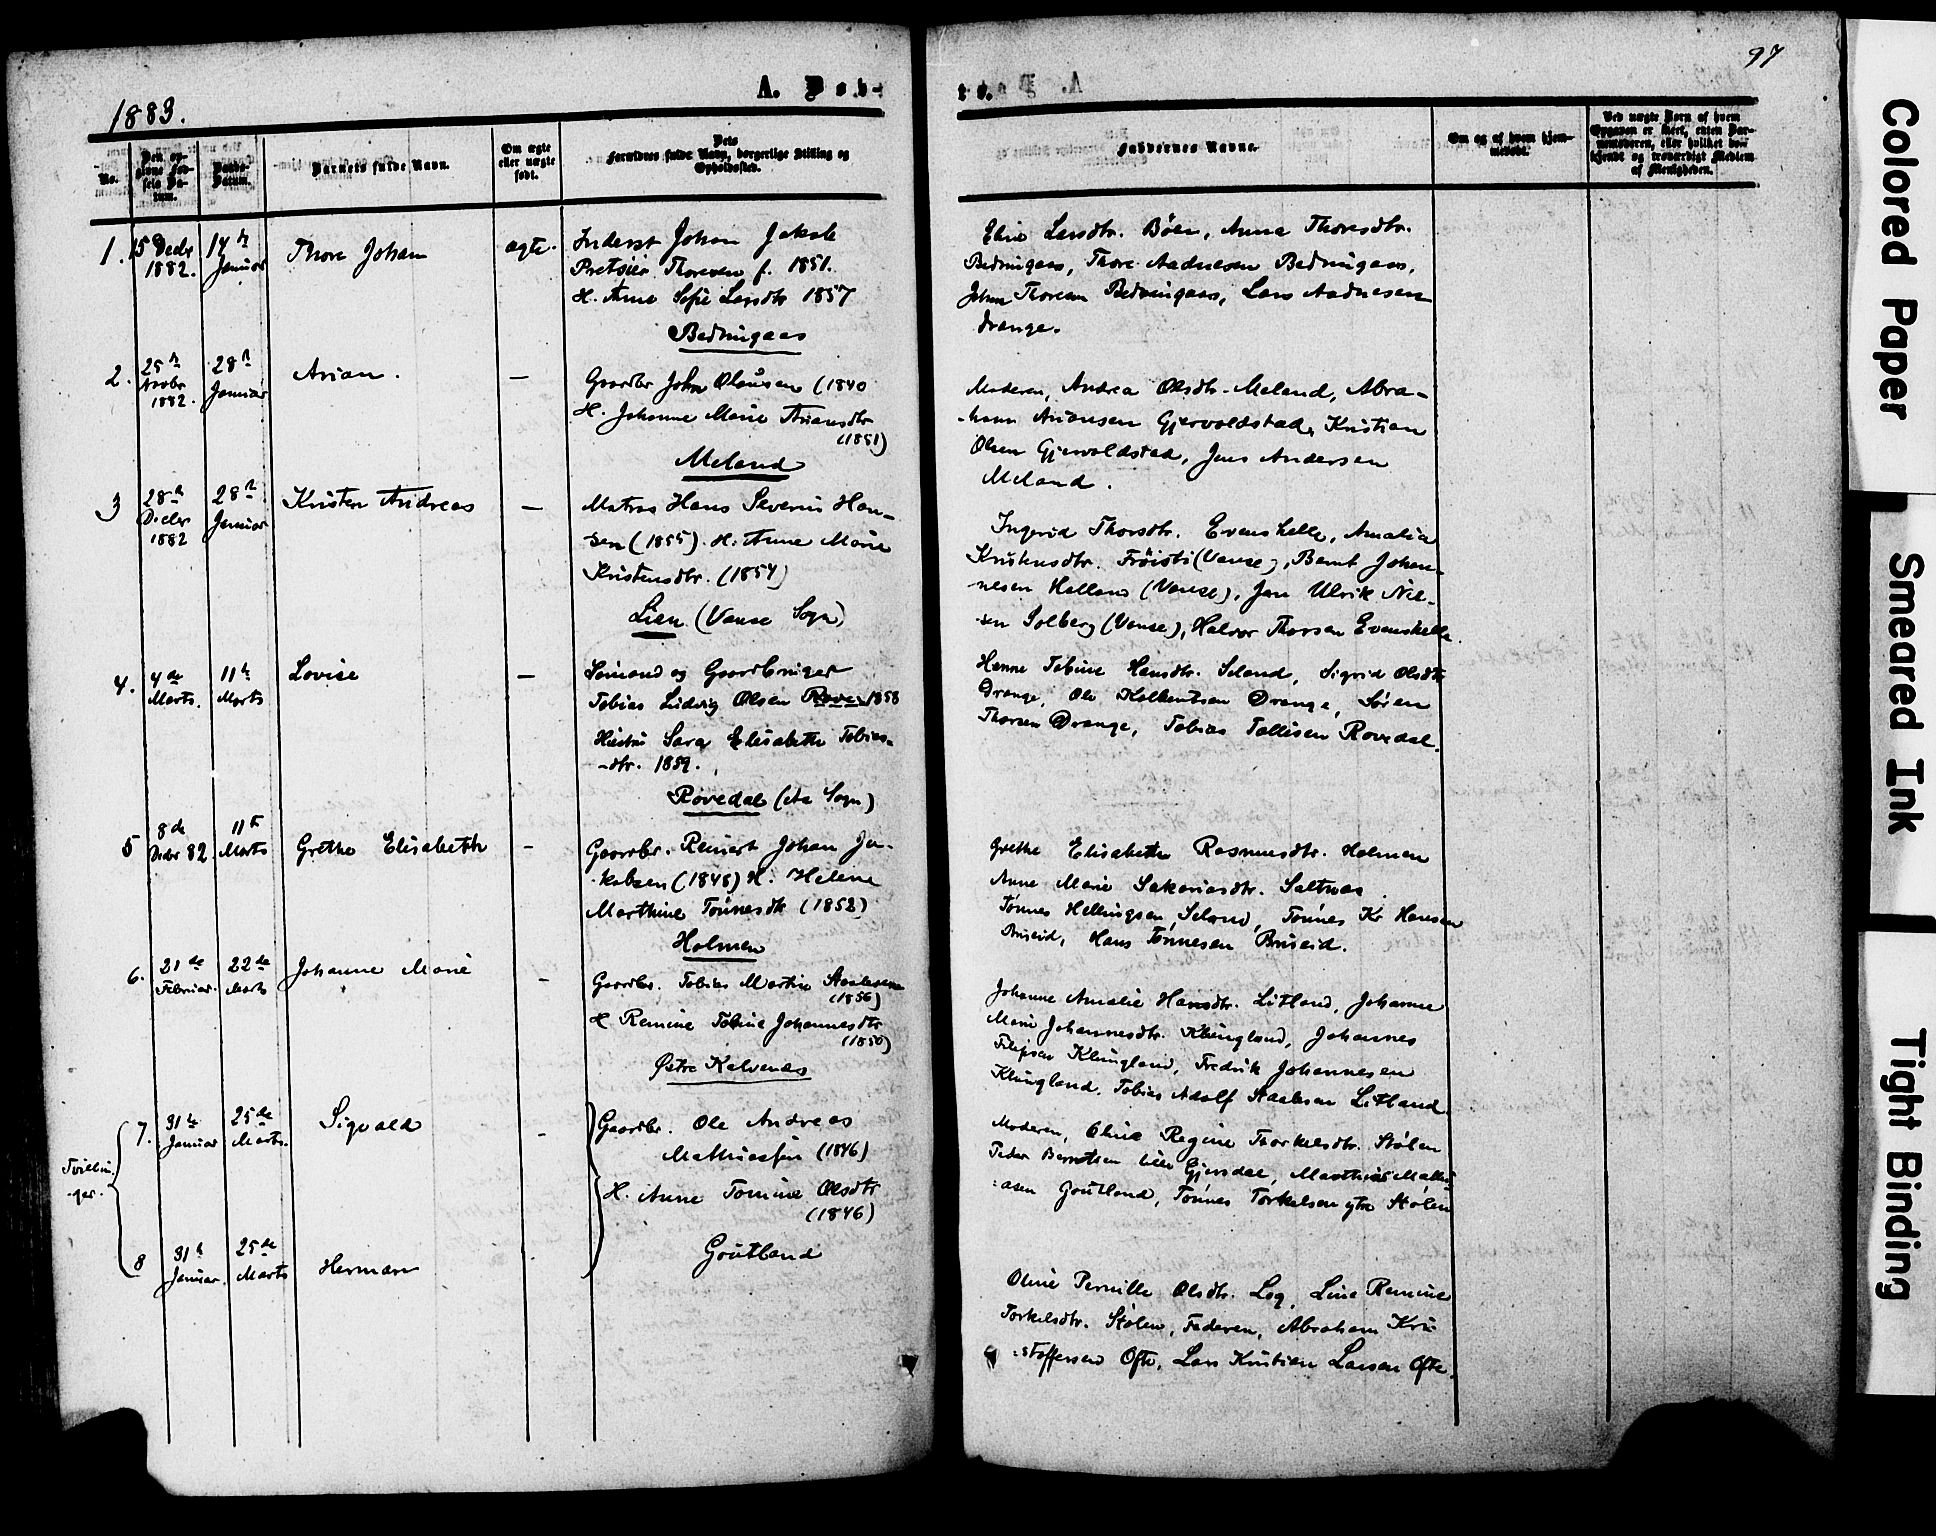 97
1883.
A. Døb-
te.
No.
Den op-
givne Fød-
sels Da-
tum.
Daabs-
Datum.
Barnets fulde Navn.
Om ægte
eller uægte
født.
Dets
Forældres fulde Navn, borgerlige Stilling og
Opholdssted.
Faddernes Navne.
Om og af hvem hjem-
medøbt.
Ved uægte Børn af hvem
Opgaven er skeet, enten Jor-
af Menigheden.
1. 15 Decbr 1882. 14de Januar Thore Johan ægte.
Inderst Johan Jakob
Thoresen f. 1851.
H. Anne Sofie Larsdtr 1857
Bedningaas
Eline Larsdtr. Bøen, Anna Thoresdtr.
Bedningaas, Thore Aadnesen Bedningaas,
Johan Thoresen Bedningaas, Lars Aadnesen
Drange.
2. 25de Novbr 1882. 28de Januar Arian. —
Gaardbr John Olausen (1840
H. Johanne Marie Ariansdtr
(1851)
Meland
Moderen, Andrea Olsdtr. Meland, Abra-
-ham Ariansen Gjervoldstad, Kristian
Olsen Gjervoldstad, Jens Andersen
Meland.
3 28de Decbr 1882 28de Januar Kristen Andreas —
Matros Hans Severin Han-
sen (1855). H. Anne Marie
Kristensdtr. (1854)
Lien (Vanse Sogn)
Ingerid Thorsdtr. Evenshelle, Amalia
Kristensdtr. Frøisti (Vanse), Bernt Johan-
nesen Helland (Vanse), Jan Ulrik Niel-
sen Solberg (Vanse), Halvor Thorsen Evenshelle.
4. 4de Marts. 11te Marts Lovise —
Sømand og Gaardbruger
Tobias Ludvig Olsen Rove- 1858
Hustru Sara Elisabeth Tobias-
-dtr. 1859.
Rovedal (Aa Sogn)
Hanne Tobine Hansdtr. Seland, Sigrid Olsdtr
Drange, Ole Kolbentsen Drange, Søren
Thorsen Drange, Tobias Tallisen Rovedal.
5 8de Decbr 82. 11te Marts Grethe Elisabeth —
Gaardbr. Reinert Johan Ja-
kobsen (1848) H. Helene
Marthine Tønnesdtr (1852)
Holmen
Grethe Elisabeth Rasmusdtr. Holmen
Anne Marie Sakariasdtr. Saltnas.
Tønnes Hellingsen Seland, Tønnes Kr Hansen
Briseid, Hans Tønnesen Briseid.
6. 21de Februar. 22de Marts Johanne Marie —
Gaardbr. Tobias Martin Staalesen
(1856)
H. Remine Tobine Johannesdtr
(1850)
Østre Kalvenes
Johanne Amalie Hansdtr. Litland, Johanne
Marie Johannesdtr. Klungland, Johannes
Filipsen Klungland, Fredrik Johannesen
Klungland. Tobias Adolf Staalesen Litland.
Tvillin-
-ger.
7. 31te Januar 25de Marts. Sigvald —
Gaardbr. Ole Andreas
Mathiassen (1846)
H. Anne Tomine Olsdtr
(1846)
Gøutland
Moderen, Oline Regine Thorkelsdtr. Stølen
Peder Berntsen lille Gjersdal, Matthias Mathi-
asen Gøutland, Tønnes Torkelsen ytre Stølen
8 31te Januar. 25de Marts Herman
Oline Pernille Olsdtr. Log, Line Remine
Torkelsdtr. Stølen, Faderen, Abraham Kri-
-stoffersen Ofte, Lars Kristian Larsen Ofte.
Colored Paper
Smeared Ink
Tight Binding